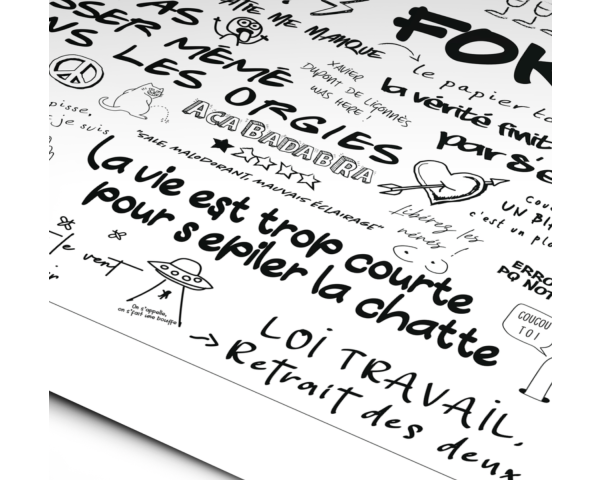 AS
TTE ME MANQUE
SSER MÊME
NS LES ORGIES
FOK
le papier
la vérité finit
par s'e
XAVIER
DUPONT DE LIGONNÈS
WAS HERE !
pisse,
je suis
ACABADABRA
"SALE, MALODORANT, MAUVAIS ÉCLAIRAGE"
Libérez les
nénés !
c'est un
UN
ERRO
PQ NOT
COUCOU
TOI
La vie est trop courte
pour s epiler la chatte
le vent
On s'appelle,
on s'fait une bouffe
LOI TRAVAIL,
Retrait des deux